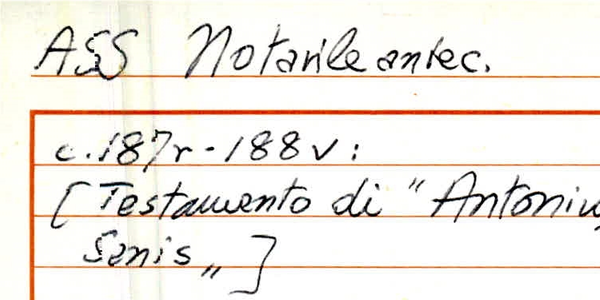 ASS Notarile antec.
c. 187r - 188v:
[Testamento di "Antonius
Senis"]